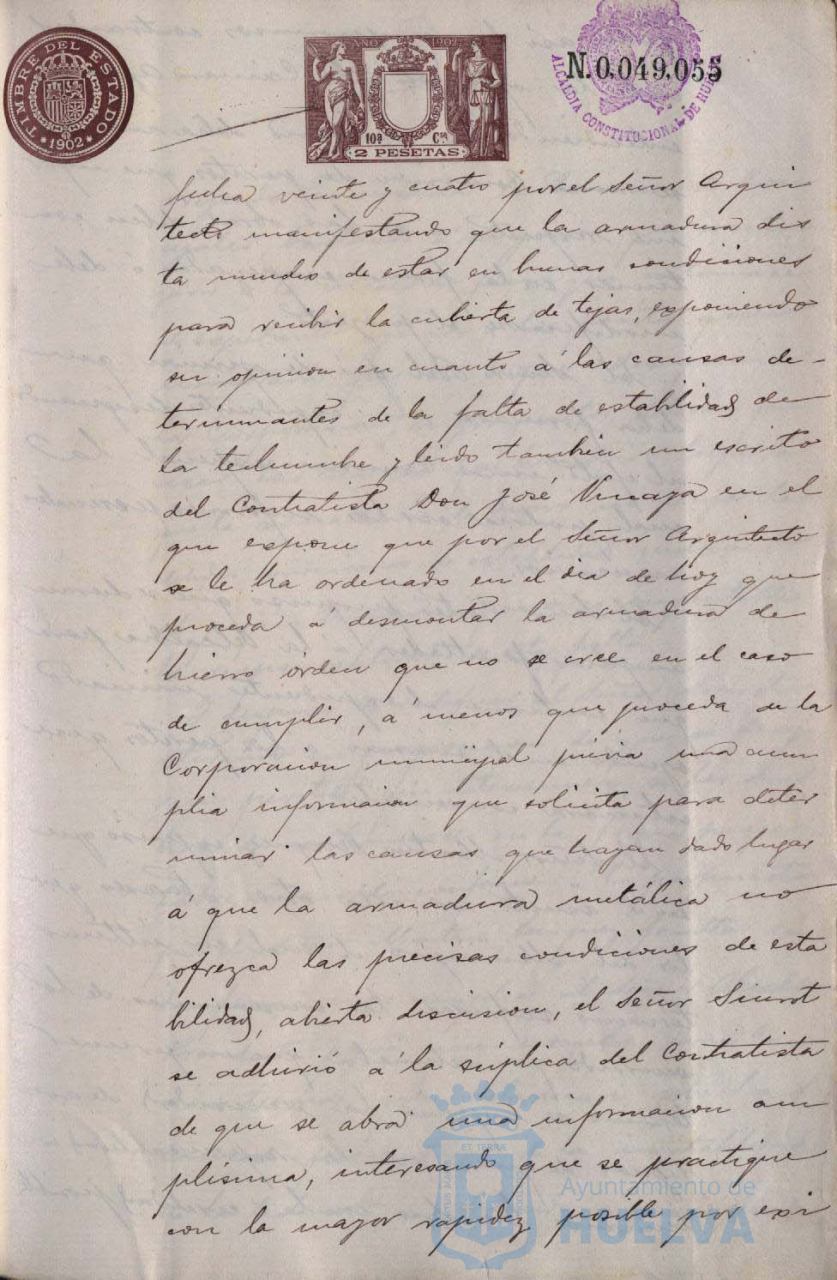 TIMBRE DEL ESTADO
*1902*
AÑO 1902
10ª Cª
2 PESETAS
N.0,049,055
ALCALDIA CONSTITUCIONAL DE HUELVA
fecha veinte y cuatro por el Señor Arqui
tecto manifestando que la armadura dis
ta mucho de estar en buenas condiciones
para recibir la cubierta de tejas, exponiendo
su opinion en cuanto á las causas de-
terminantes de la falta de estabilidad de
la techumbre y leido tambien un escrito
del Contratista Don José en el
que expone que por el Señor Arquitecto
se le ha ordenado en el dia de hoy que
proceda á desmontar la armadura de
hierro órden que no se cree en el caso
de cumplir, á menos que proceda de la
Corporacion municipal previa una am
plia informacion que solicita para deter
minar las causas que hayan dado lugar
á que la armadura metálica no
ofrezca las precisas condiciones de esta
bilidad, abierta discusion, el Señor Siurot
se adhirió á la súplica del Contratista
de que se abra una informacion am
plísima, interesando que se practique
con la mayor rapidez posible por exi
Ayuntamiento de
HUELVA